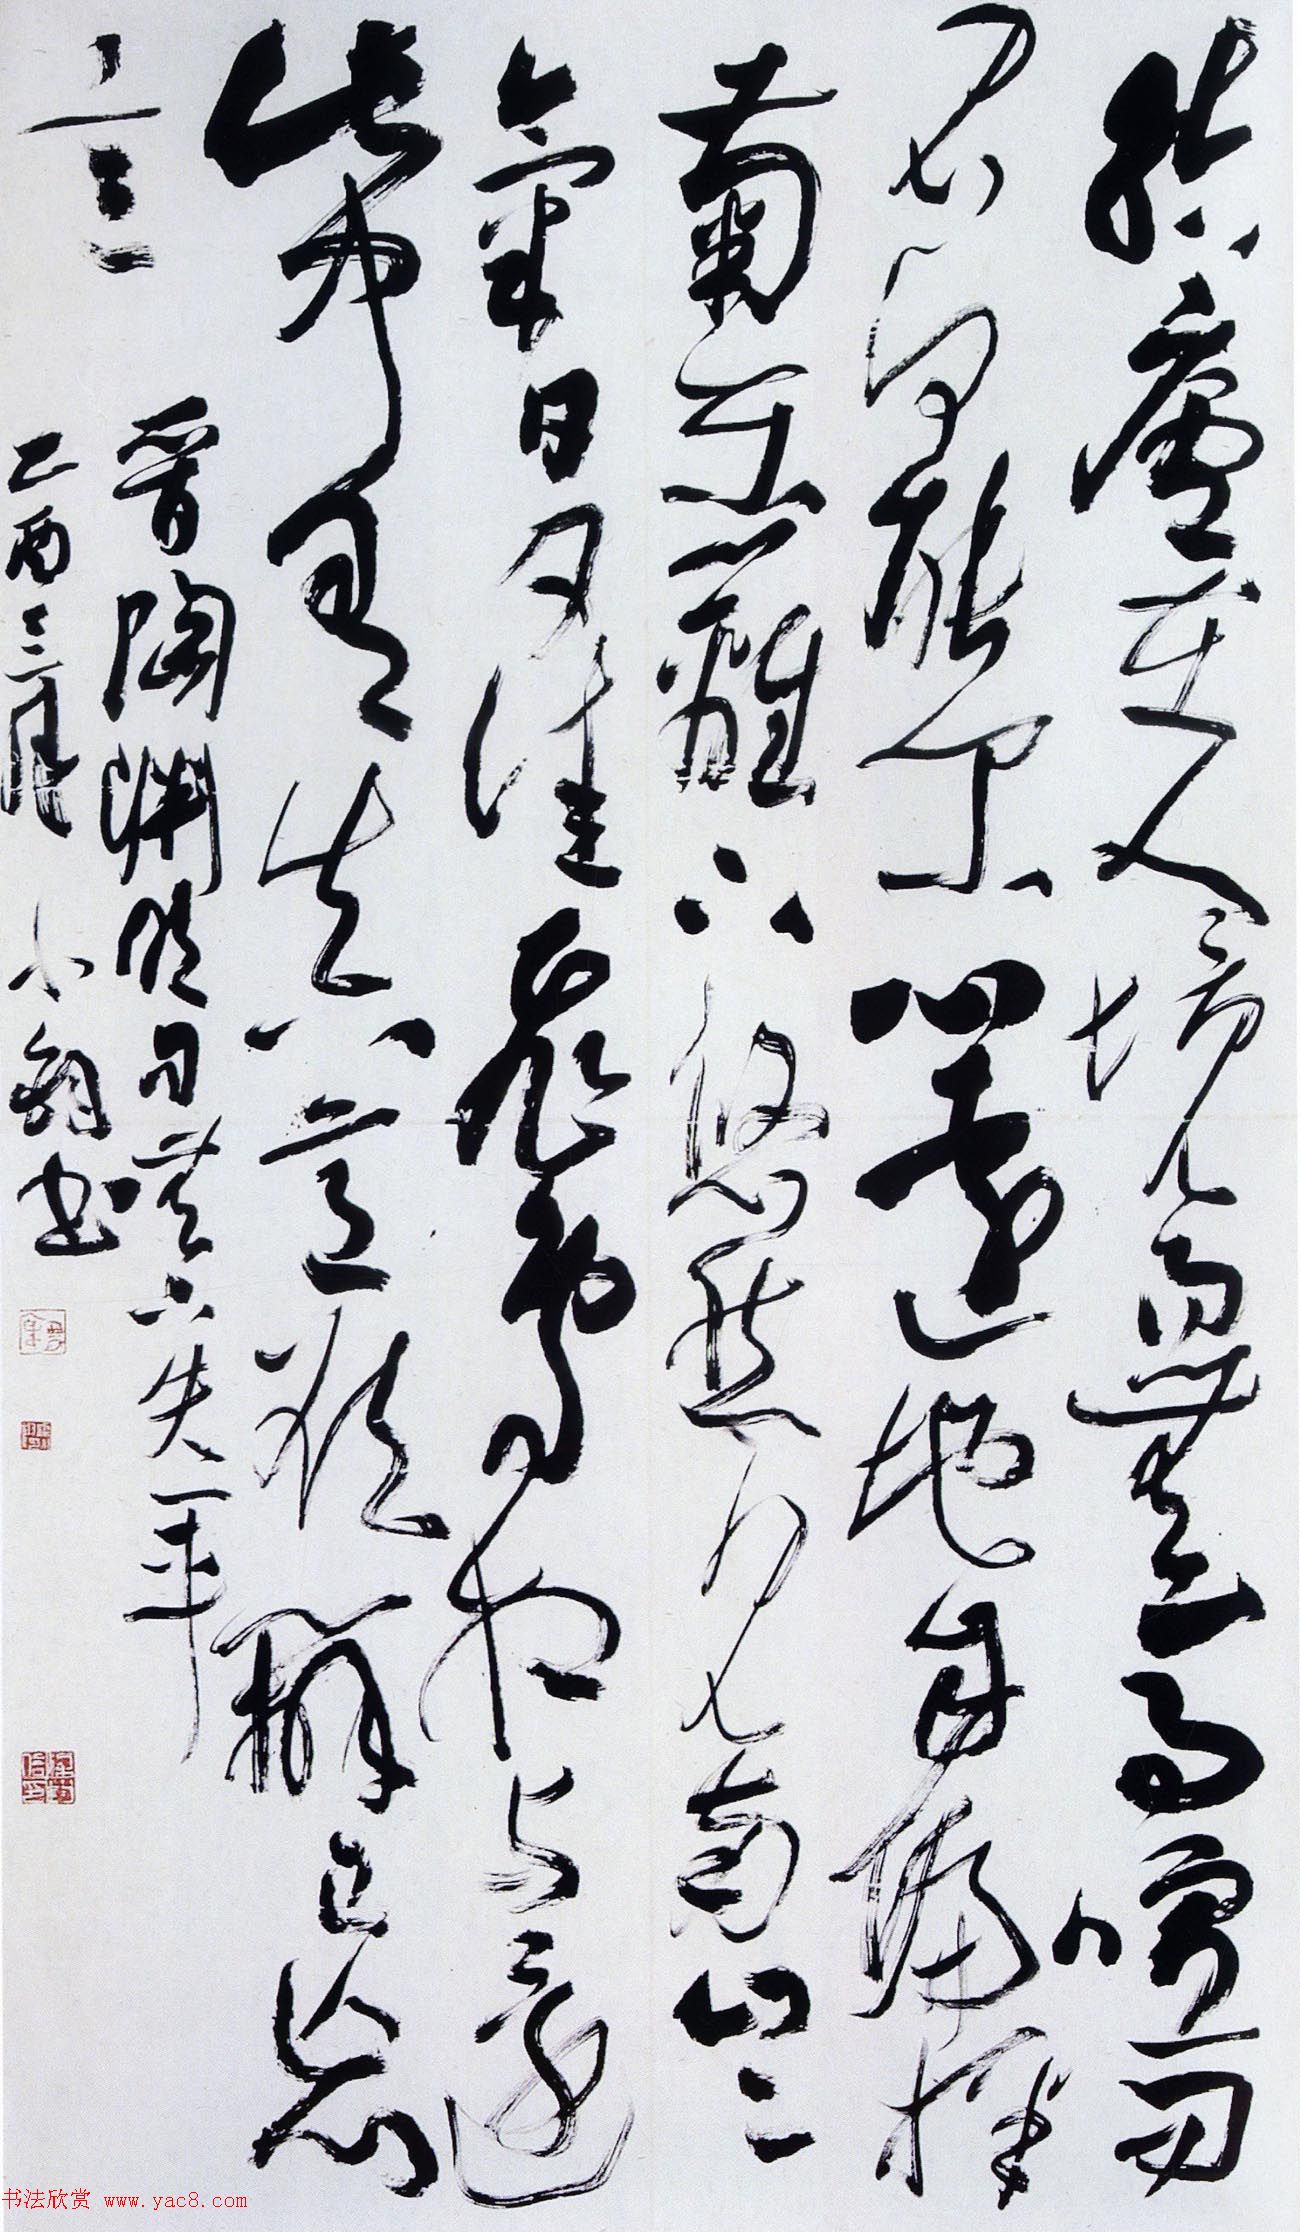 結廬在人境而無車馬喧問
君何能尔心遠地自偏採
菊東籬下悠然見南山〻
氣日夕佳飛鳥相与還
此中有真意欲辨已忘
言
晉陶淵明句
乙酉三月 书
书法欣赏 www.yac8.com